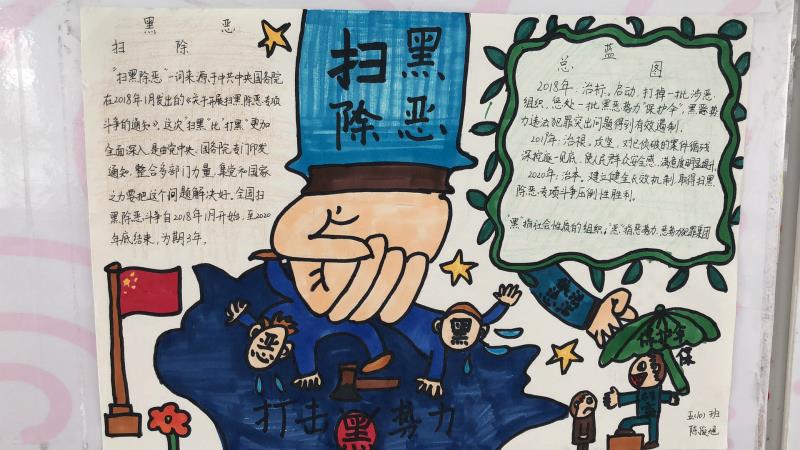 黑 恶
扫 除
"扫黑除恶"一词来源于中共中央国务院
在2018年1月发出的《关于开展扫黑除恶专项
斗争的通知》。这次"扫黑"比"打黑"更加
全面深入,是由党中央、国务院专门印发
通知,整合多部门力量,集党和国家
之力要把这个问题解决好。全国扫
黑除恶斗争自2018年1月开始,至2020
年底结束,为期3年。
扫黑
除恶
总 蓝 图
2018年:治标。启动,打掉一批涉恶
组织,惩处一批黑恶势力"保护伞",黑恶势
力违法犯罪突出问题得到有效遏制。
2019年:治根。攻坚,对已侦破的案件循线
深挖逐一见底,使人民群众安全感、满意度明显提升。
2020年:治本。建立健全长效机制,取得扫黑
除恶专项斗争压倒性胜利。
"黑"指社会性质的组织。"恶"指恶势力、恶势力犯罪集团
恶
黑
保护伞
保
打击 势力
黑
五(10)班